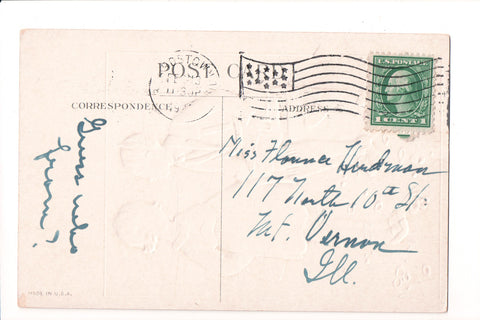 POST CARD
CORRESPONDENCE
ADDRESS
U.S. POSTAGE
1 CENT 1
Guess who
from?
Miss Florence Herdman
117 North 10th St.
Mt. Vernon
Ill.
MADE IN U.S.A.